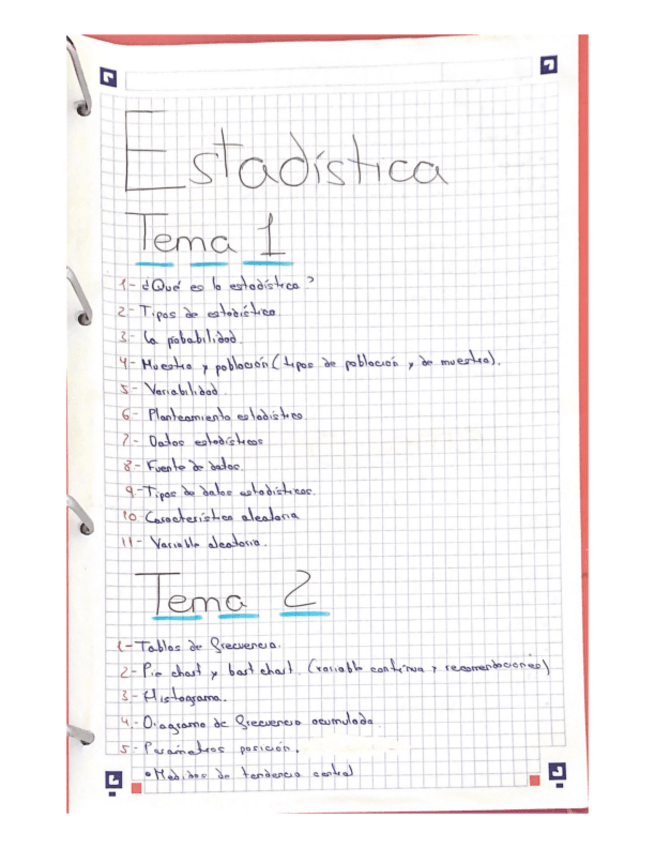 Estadística
Tema 1
1- ¿Qué es la estadística?
2- Tipos de estadística
3- La probabilidad.
4- Muestra y población (tipos de población y de muestra).
5- Variabilidad.
6- Planteamiento estadístico
7- Datos estadísticos
8- Fuente de datos.
9- Tipos de datos estadísticos.
10 Característica aleatoria
11- Variable aleatoria.
Tema 2
1- Tablas de frecuencia.
2- Pie chart y bart chart. (variable continua y recomendaciones)
3- Histograma.
4.- Diagrama de frecuencia acumulada.
5- Parámetros posición.
• Medidas de tendencia central